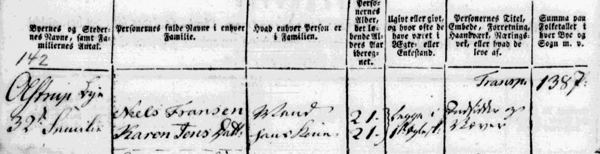 Byernes og Stedernes Navne, samt Familiernes Antal.
Personernes fulde Navne i enhver Familie.
Hvad enhver Person er i Familien.
Personernes Alder, det løbende Alders Aar iberegnet.
Ugivt eller givt, og hvor ofte de have været i Ægte- eller Enkestand.
Personernes Titel, Embede, Forretning, Haandværk, Næringsvei, eller hvad de leve af.
Summa paa Folketallet i hver Bye og Sogn m. v.
142
Transp. 1387.
Olstrup Bye
32te Familie
Niels Fransen Mand 21.
Karen Jens Datt. hans Kone 21.